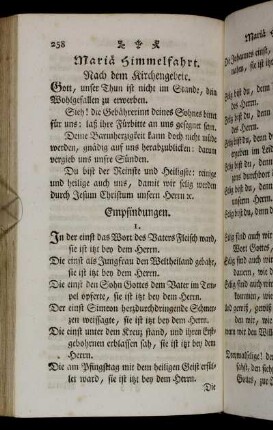 258
Mariä Himmelfahrt.
Nach dem Kirchengebeit.
Gott, unser Thun ist nicht im Stande, dein
Wohlgefallen zu erwerben.
Sieh! die Gebährerinn deines Sohnes dennt
für uns: laß ihre Fürbitte an uns gesegnet seyn.
Deine Barmherzigkeit kann doch nicht müde
werden, gnädig auf uns herabzublicken: darum
vergieb uns unsre Sünden.
Du bist der Reinste und Heiligste: reinige
und heilige auch uns, damit wir selig werden
durch Jesum Christum unsern Herrn ꝛc.
Empfindungen.
1.
In der einst das Wort des Vaters Fleisch ward,
sie ist itzt bey dem Herrn.
Die einst als Jungfrau den Weltheiland gebahr,
sie ist itzt bey dem Herrn.
Die einst den Sohn Gottes dem Vater im Tem-
pel opferte, sie ist itzt bey dem Herrn.
Der einst Simeon herzdurchdringende Schmer-
zen weissagte, sie ist itzt bey dem Herrn.
Die einst unter dem Kreuz stand, und ihren Erst-
gebohrnen erblassen sah, sie ist itzt bey dem
Herrn.
Die am Pfingsttag mit dem heiligen Geist erfül-
let ward, sie ist itzt bey dem Herrn.
Die
Mariä
Die Johannes einst
sie ist itzt
Selig bist du, denn
Selig bist du, denn
Selig bist du, denn
Selig bist du, denn
Selig sind auch wir
Wort Gottes,
Selig sind auch wir
Gottes, zur